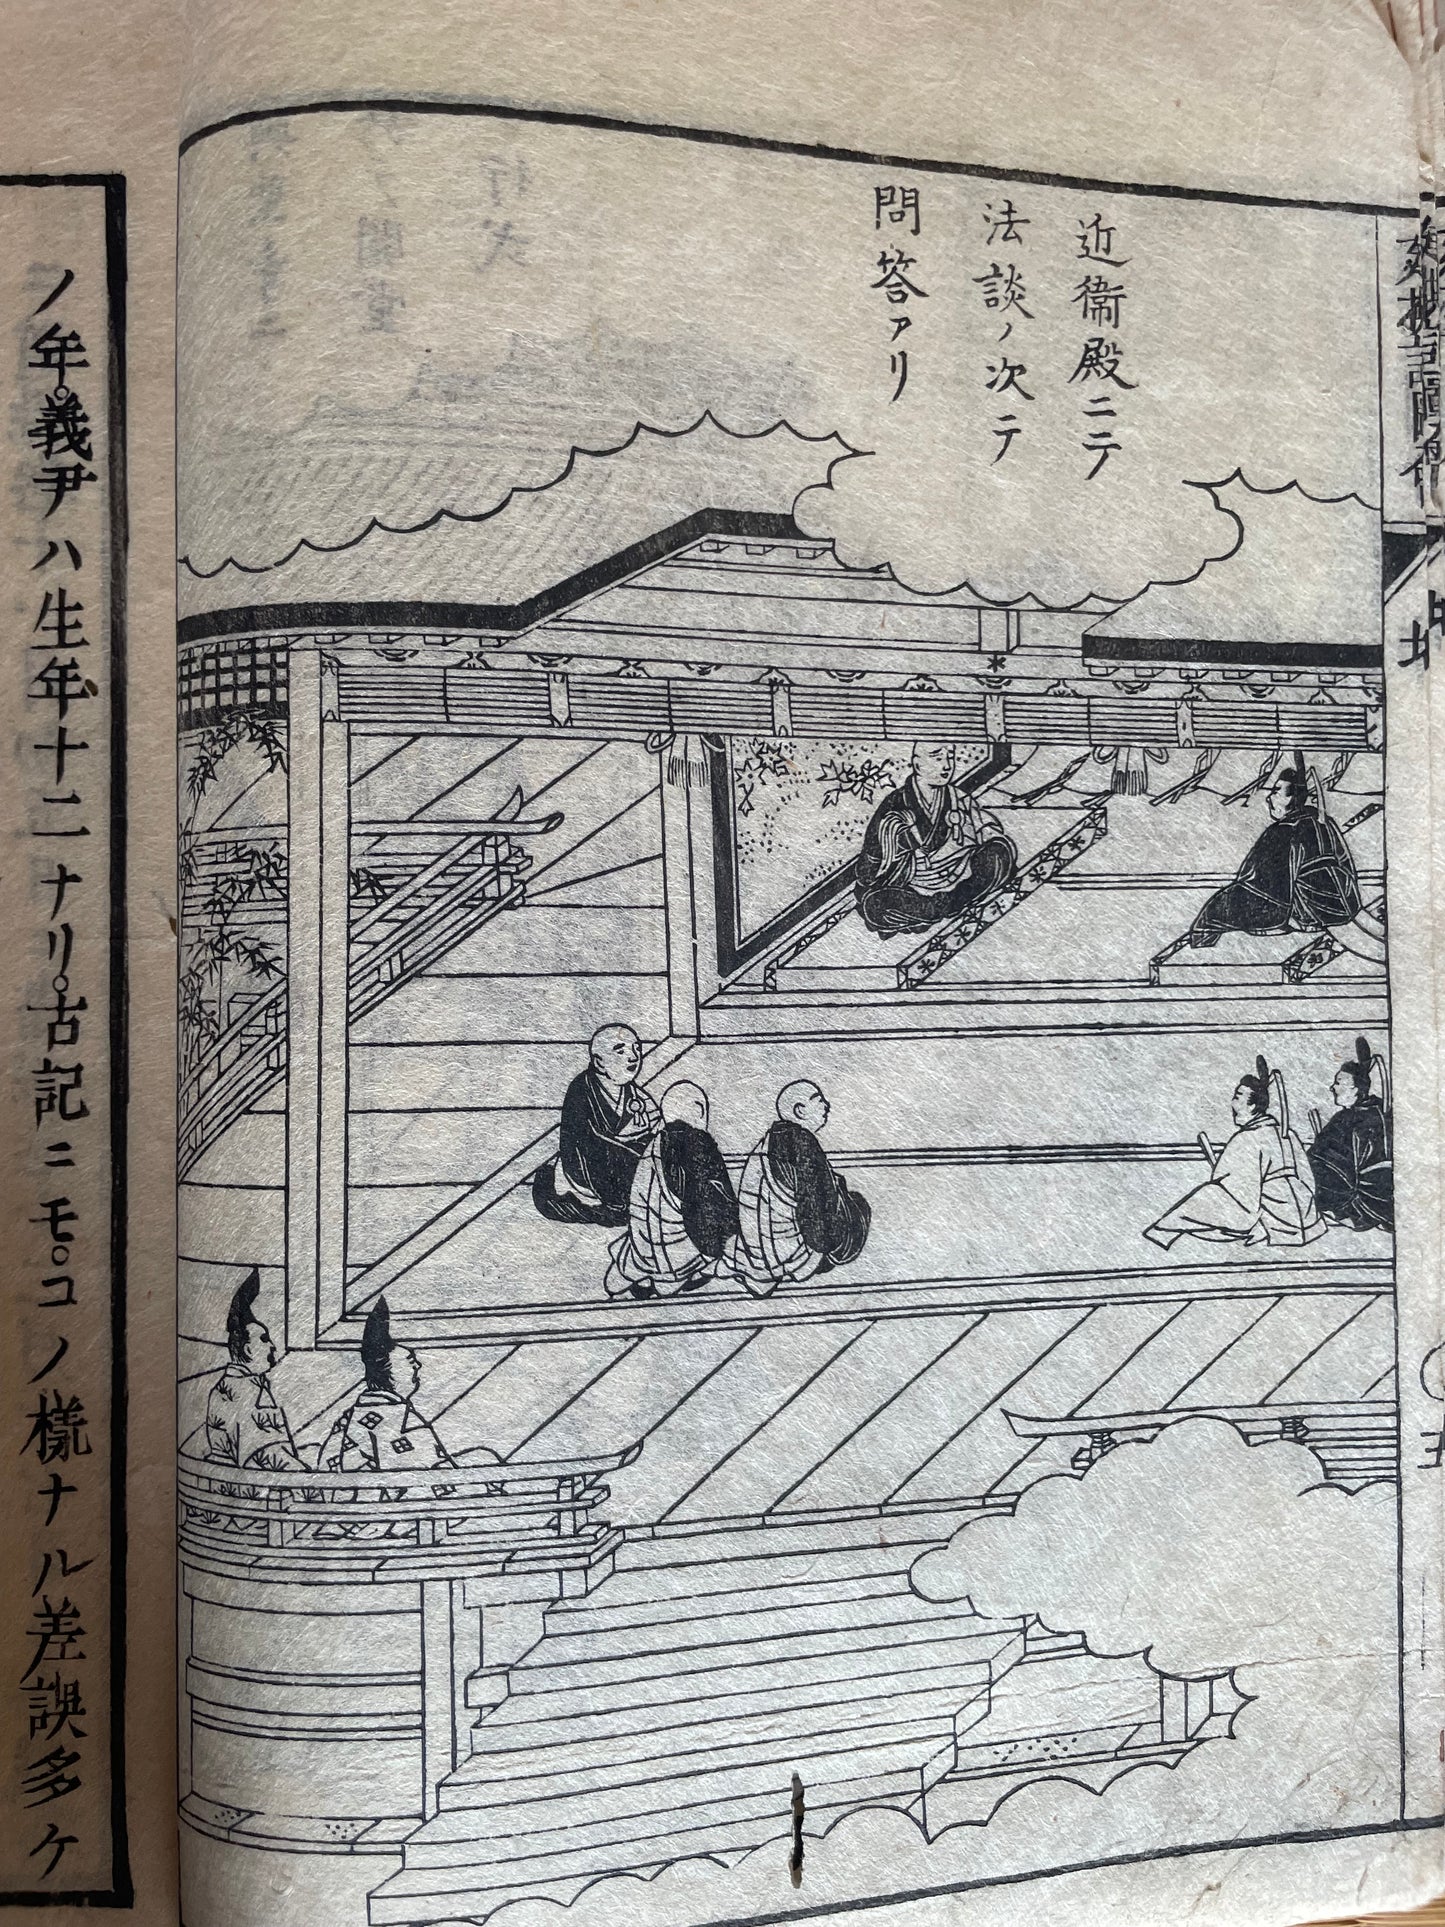 近衞殿ニテ
法談ノ次テ
問答アリ
ノ年。義尹ハ生年十二ナリ。古記ニモ。コノ樣ナル差誤多ケ